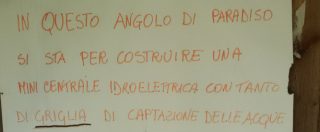 IN QUESTO ANGOLO DI PARADISO
SI STA PER COSTRUIRE UNA
MINI CENTRALE IDROELETTRICA CON TANTO
DI GRIGLIA DI CAPTAZIONE DELLE ACQUE